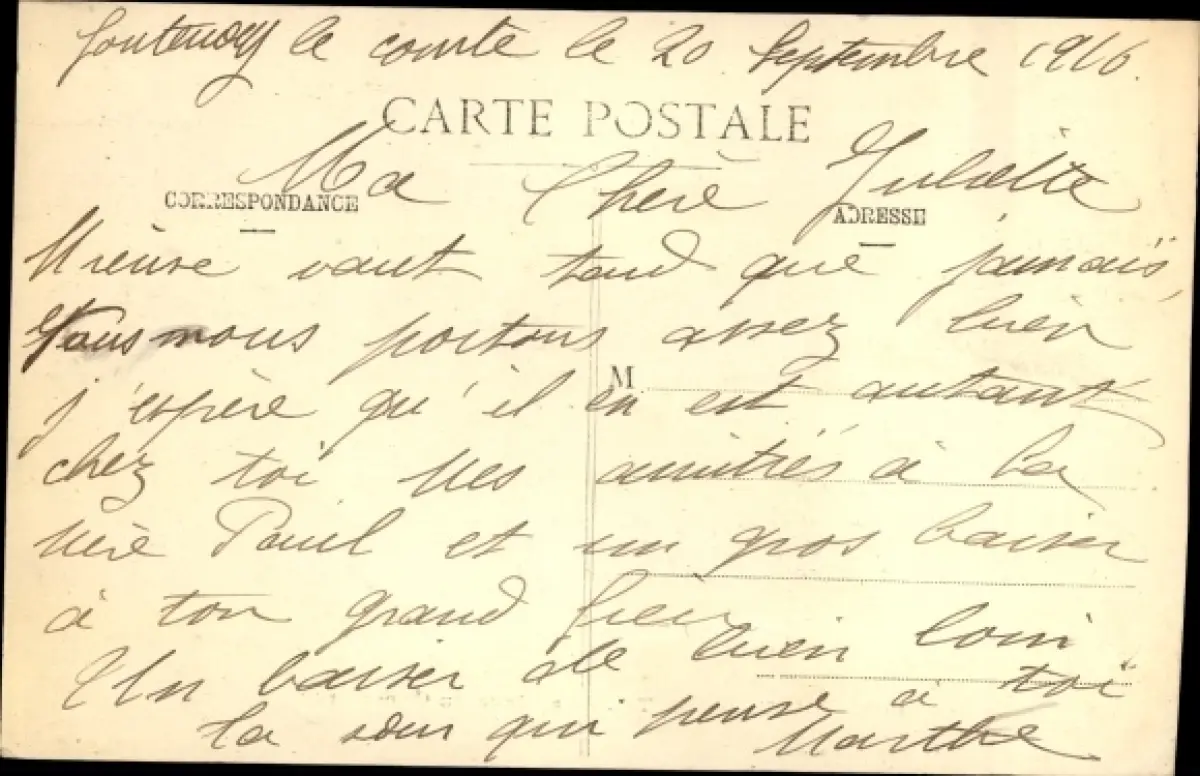 Fontenoy le comte le 20 Septembre 1916.
CARTE POSTALE
Ma Chère Juliette
CORRESPONDANCE
ADRESSE
Mieuse vaut tard que jamais,
Nous nous portons assez bien
M
j'espère qu'il en est autant
chez toi Mes amitiés à la
mère Paul et un gros baiser
à ton grand fieu
Un baiser de bien loin
ta sœur qui pense à toi
Marthe